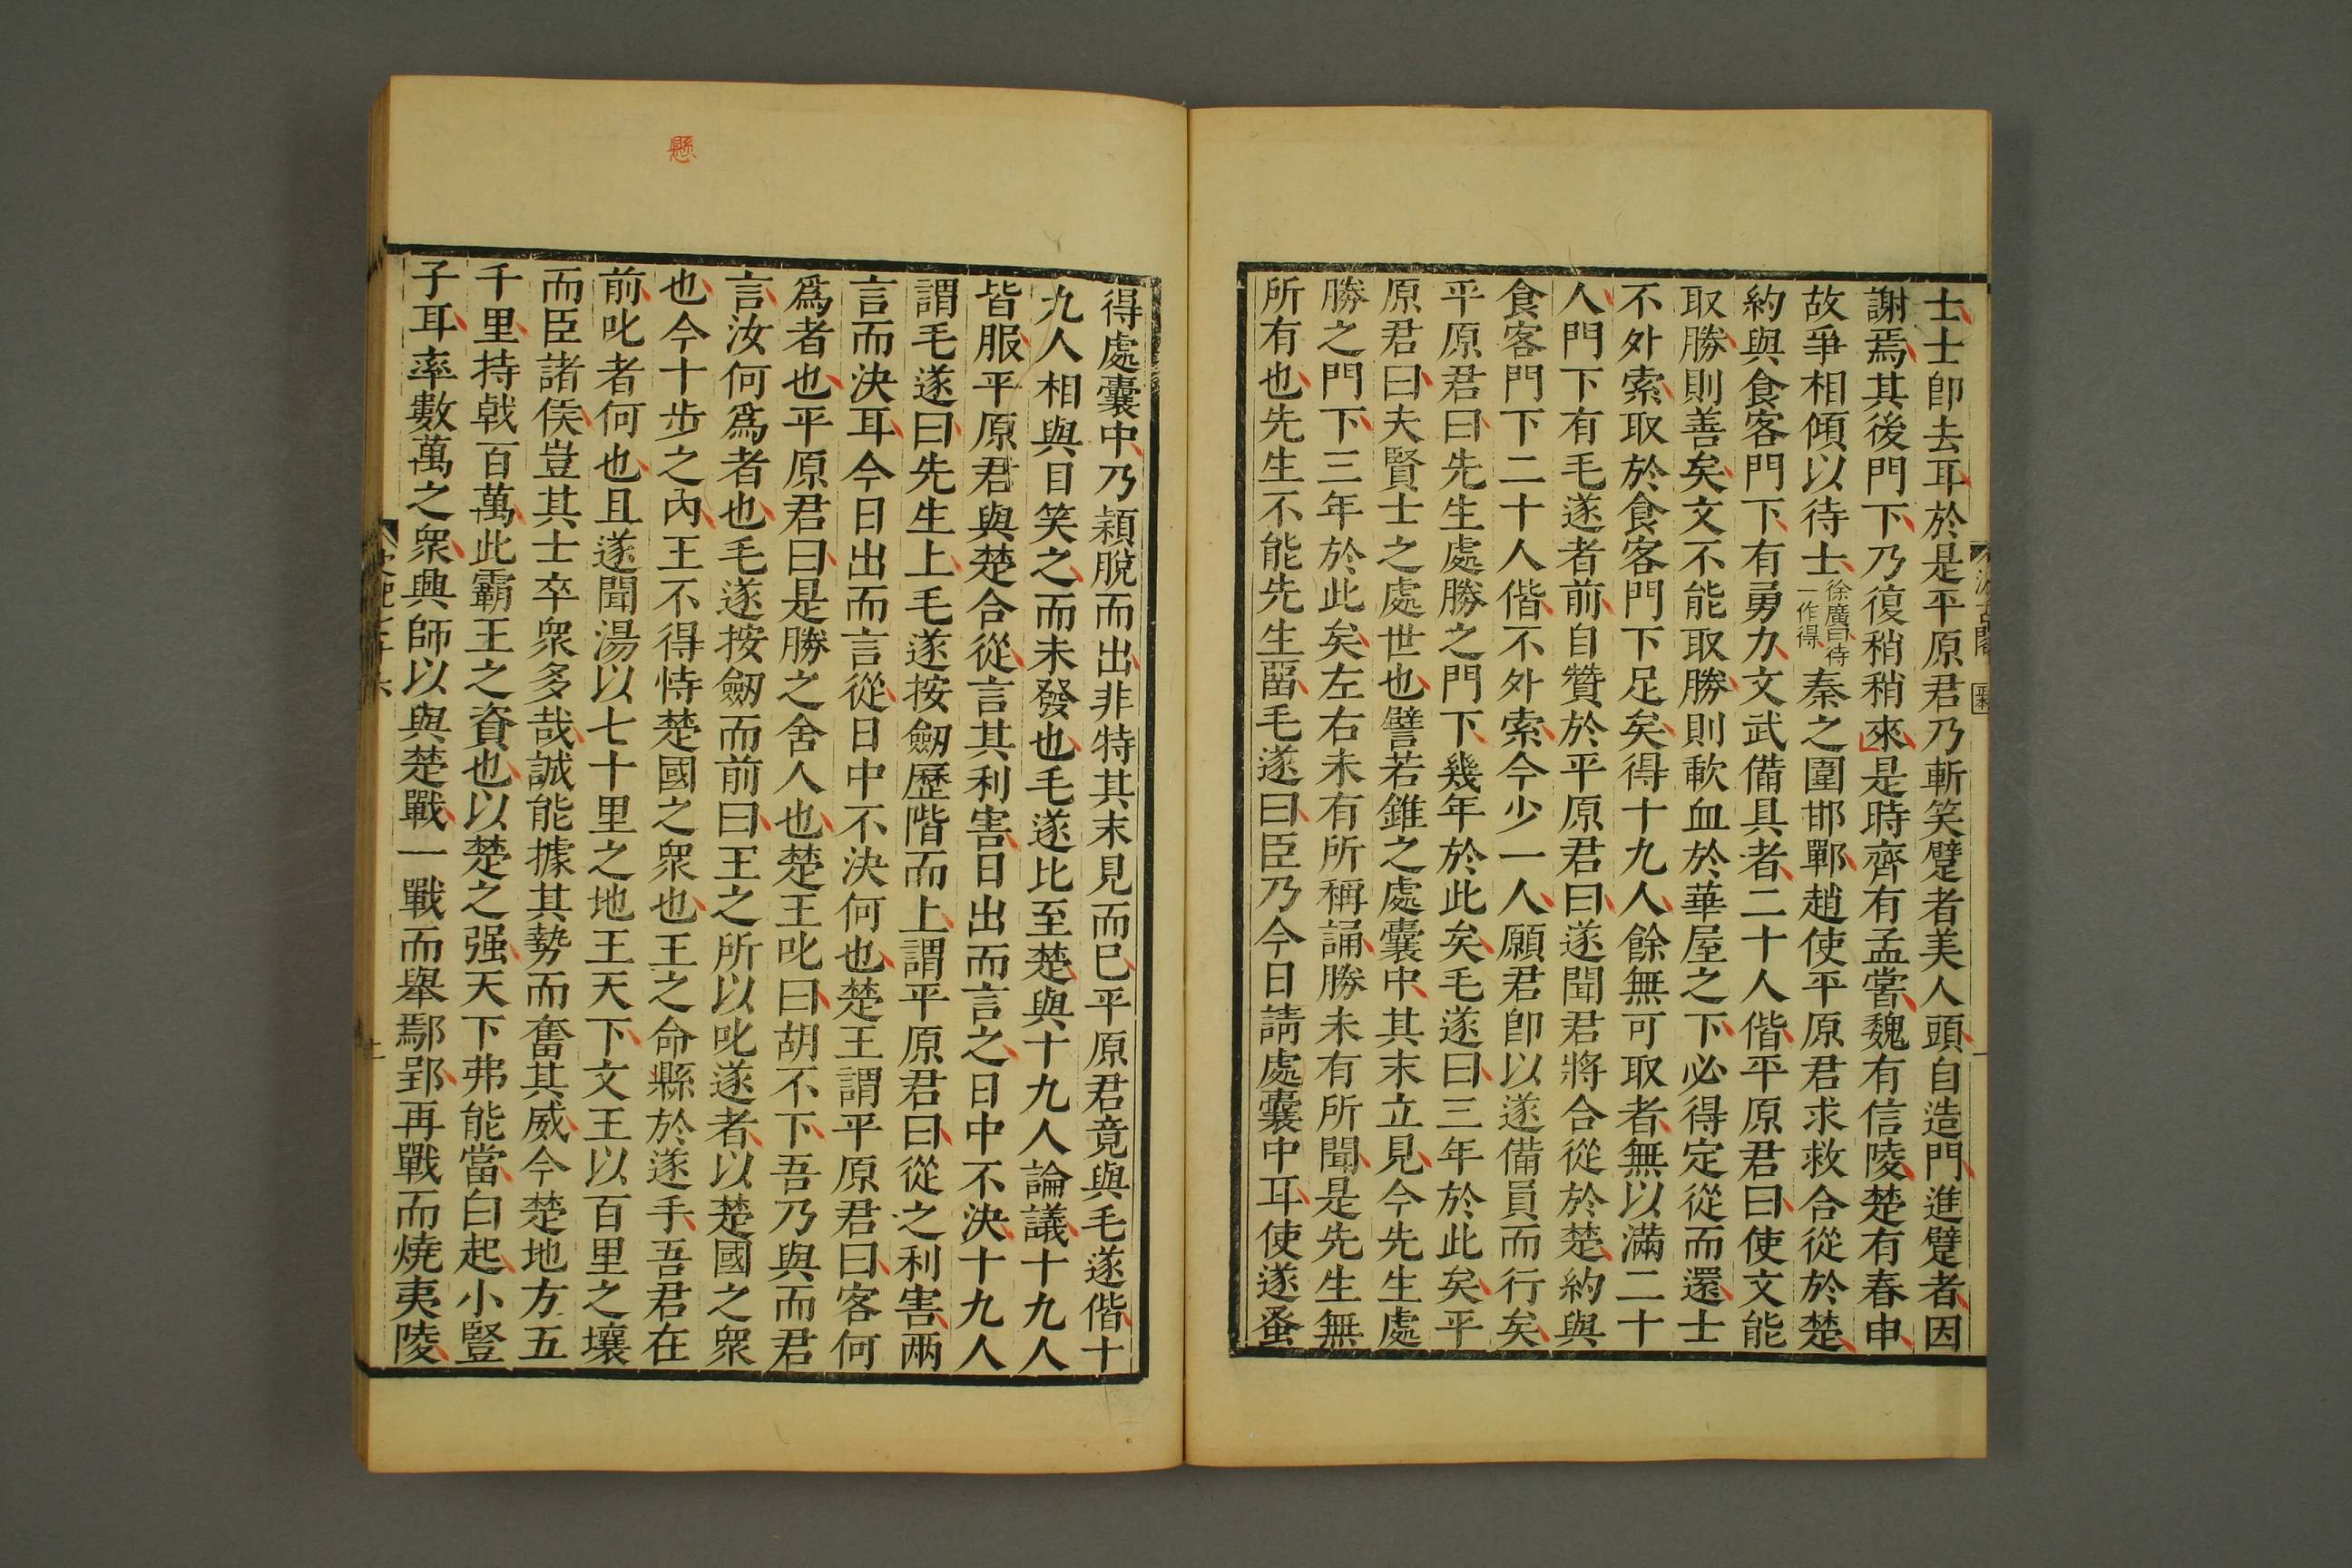 士士卽去耳於是平原君乃斬笑躄者美人頭自造門進躄者因
謝焉其後門下乃復稍稍來是時齊有孟嘗魏有信陵楚有春申
故爭相傾以待士徐廣曰待一作得秦之圍邯鄲趙使平原君求救合從於楚
約與食客門下有勇力文武備具者二十人偕平原君曰使文能
取勝則善矣文不能取勝則歃血於華屋之下必得定從而還士
不外索取於食客門下足矣得十九人餘無可取者無以滿二十
人門下有毛遂者前自贊於平原君曰遂聞君將合從於楚約與
食客門下二十人偕不外索今少一人願君卽以遂備員而行矣
平原君曰先生處勝之門下幾年於此矣毛遂曰三年於此矣平
原君曰夫賢士之處世也譬若錐之處囊中其末立見今先生處
勝之門下三年於此矣左右未有所稱誦勝未有所聞是先生無
所有也先生不能先生畱毛遂曰臣乃今日請處囊中耳使遂蚤
懸
得處囊中乃穎脫而出非特其末見而已平原君竟與毛遂偕十
九人相與目笑之而未發也毛遂比至楚與十九人論議十九人
皆服平原君與楚合從言其利害日出而言之日中不決十九人
謂毛遂曰先生上毛遂按劒歷階而上謂平原君曰從之利害兩
言而決耳今日出而言從日中不決何也楚王謂平原君曰客何
爲者也平原君曰是勝之舍人也楚王叱曰胡不下吾乃與而君
言汝何爲者也毛遂按劒而前曰王之所以叱遂者以楚國之衆
也今十步之內王不得恃楚國之衆也王之命縣於遂手吾君在
前叱者何也且遂聞湯以七十里之地王天下文王以百里之壤
而臣諸侯豈其士卒衆多哉誠能據其勢而奮其威今楚地方五
千里持戟百萬此霸王之資也以楚之强天下弗能當白起小豎
子耳率數萬之衆興師以與楚戰一戰而舉鄢郢再戰而燒夷陵